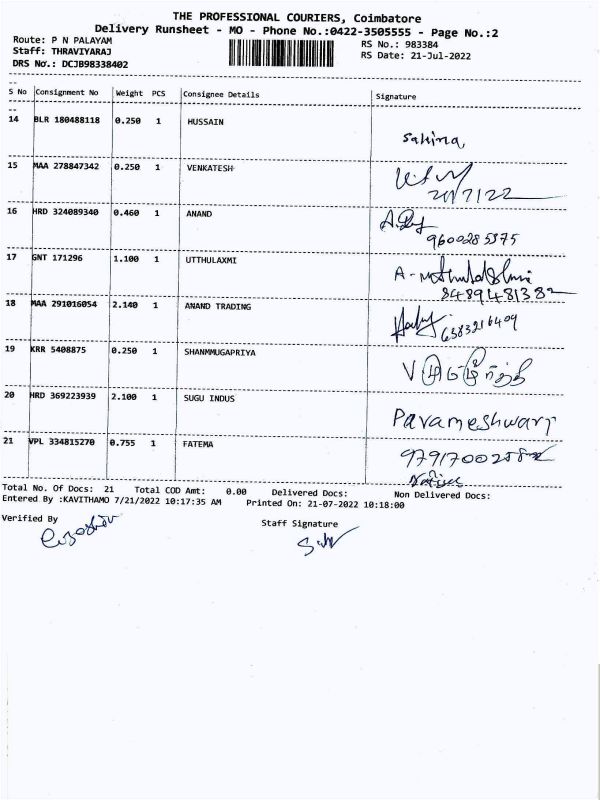 THE PROFESSIONAL COURIERS, Coimbatore
Delivery Runsheet - MO - Phone No.:0422-3505555 - Page No.:2
Route: P N PALAYAM
RS No.: 983384
Staff: THRAVIYARAJ
RS Date: 21-Jul-2022
DRS No.: DCJB98338402
S No Consignment No Weight PCS Consignee Details Signature
14 BLR 180488118 0.250 1 HUSSAIN
Sakina
15 MAA 278847342 0.250 1 VENKATESH
16 HRD 324089340 0.460 1 ANAND
9600285375
17 GNT 171296 1.100 1 UTTHULAXMI
8489481382
18 MAA 291016054 2.140 1 ANAND TRADING
6383216409
19 KRR 5408875 0.250 1 SHANMMUGAPRIYA
20 HRD 369223939 2.100 1 SUGU INDUS
Parameshwari
21 VPL 334815270 0.755 1 FATEMA
Total No. Of Docs: 21 Total COD Amt: 0.00 Delivered Docs: Non Delivered Docs:
Entered By :KAVITHAMO 7/21/2022 10:17:35 AM Printed On: 21-07-2022 10:18:00
Verified By
Staff Signature